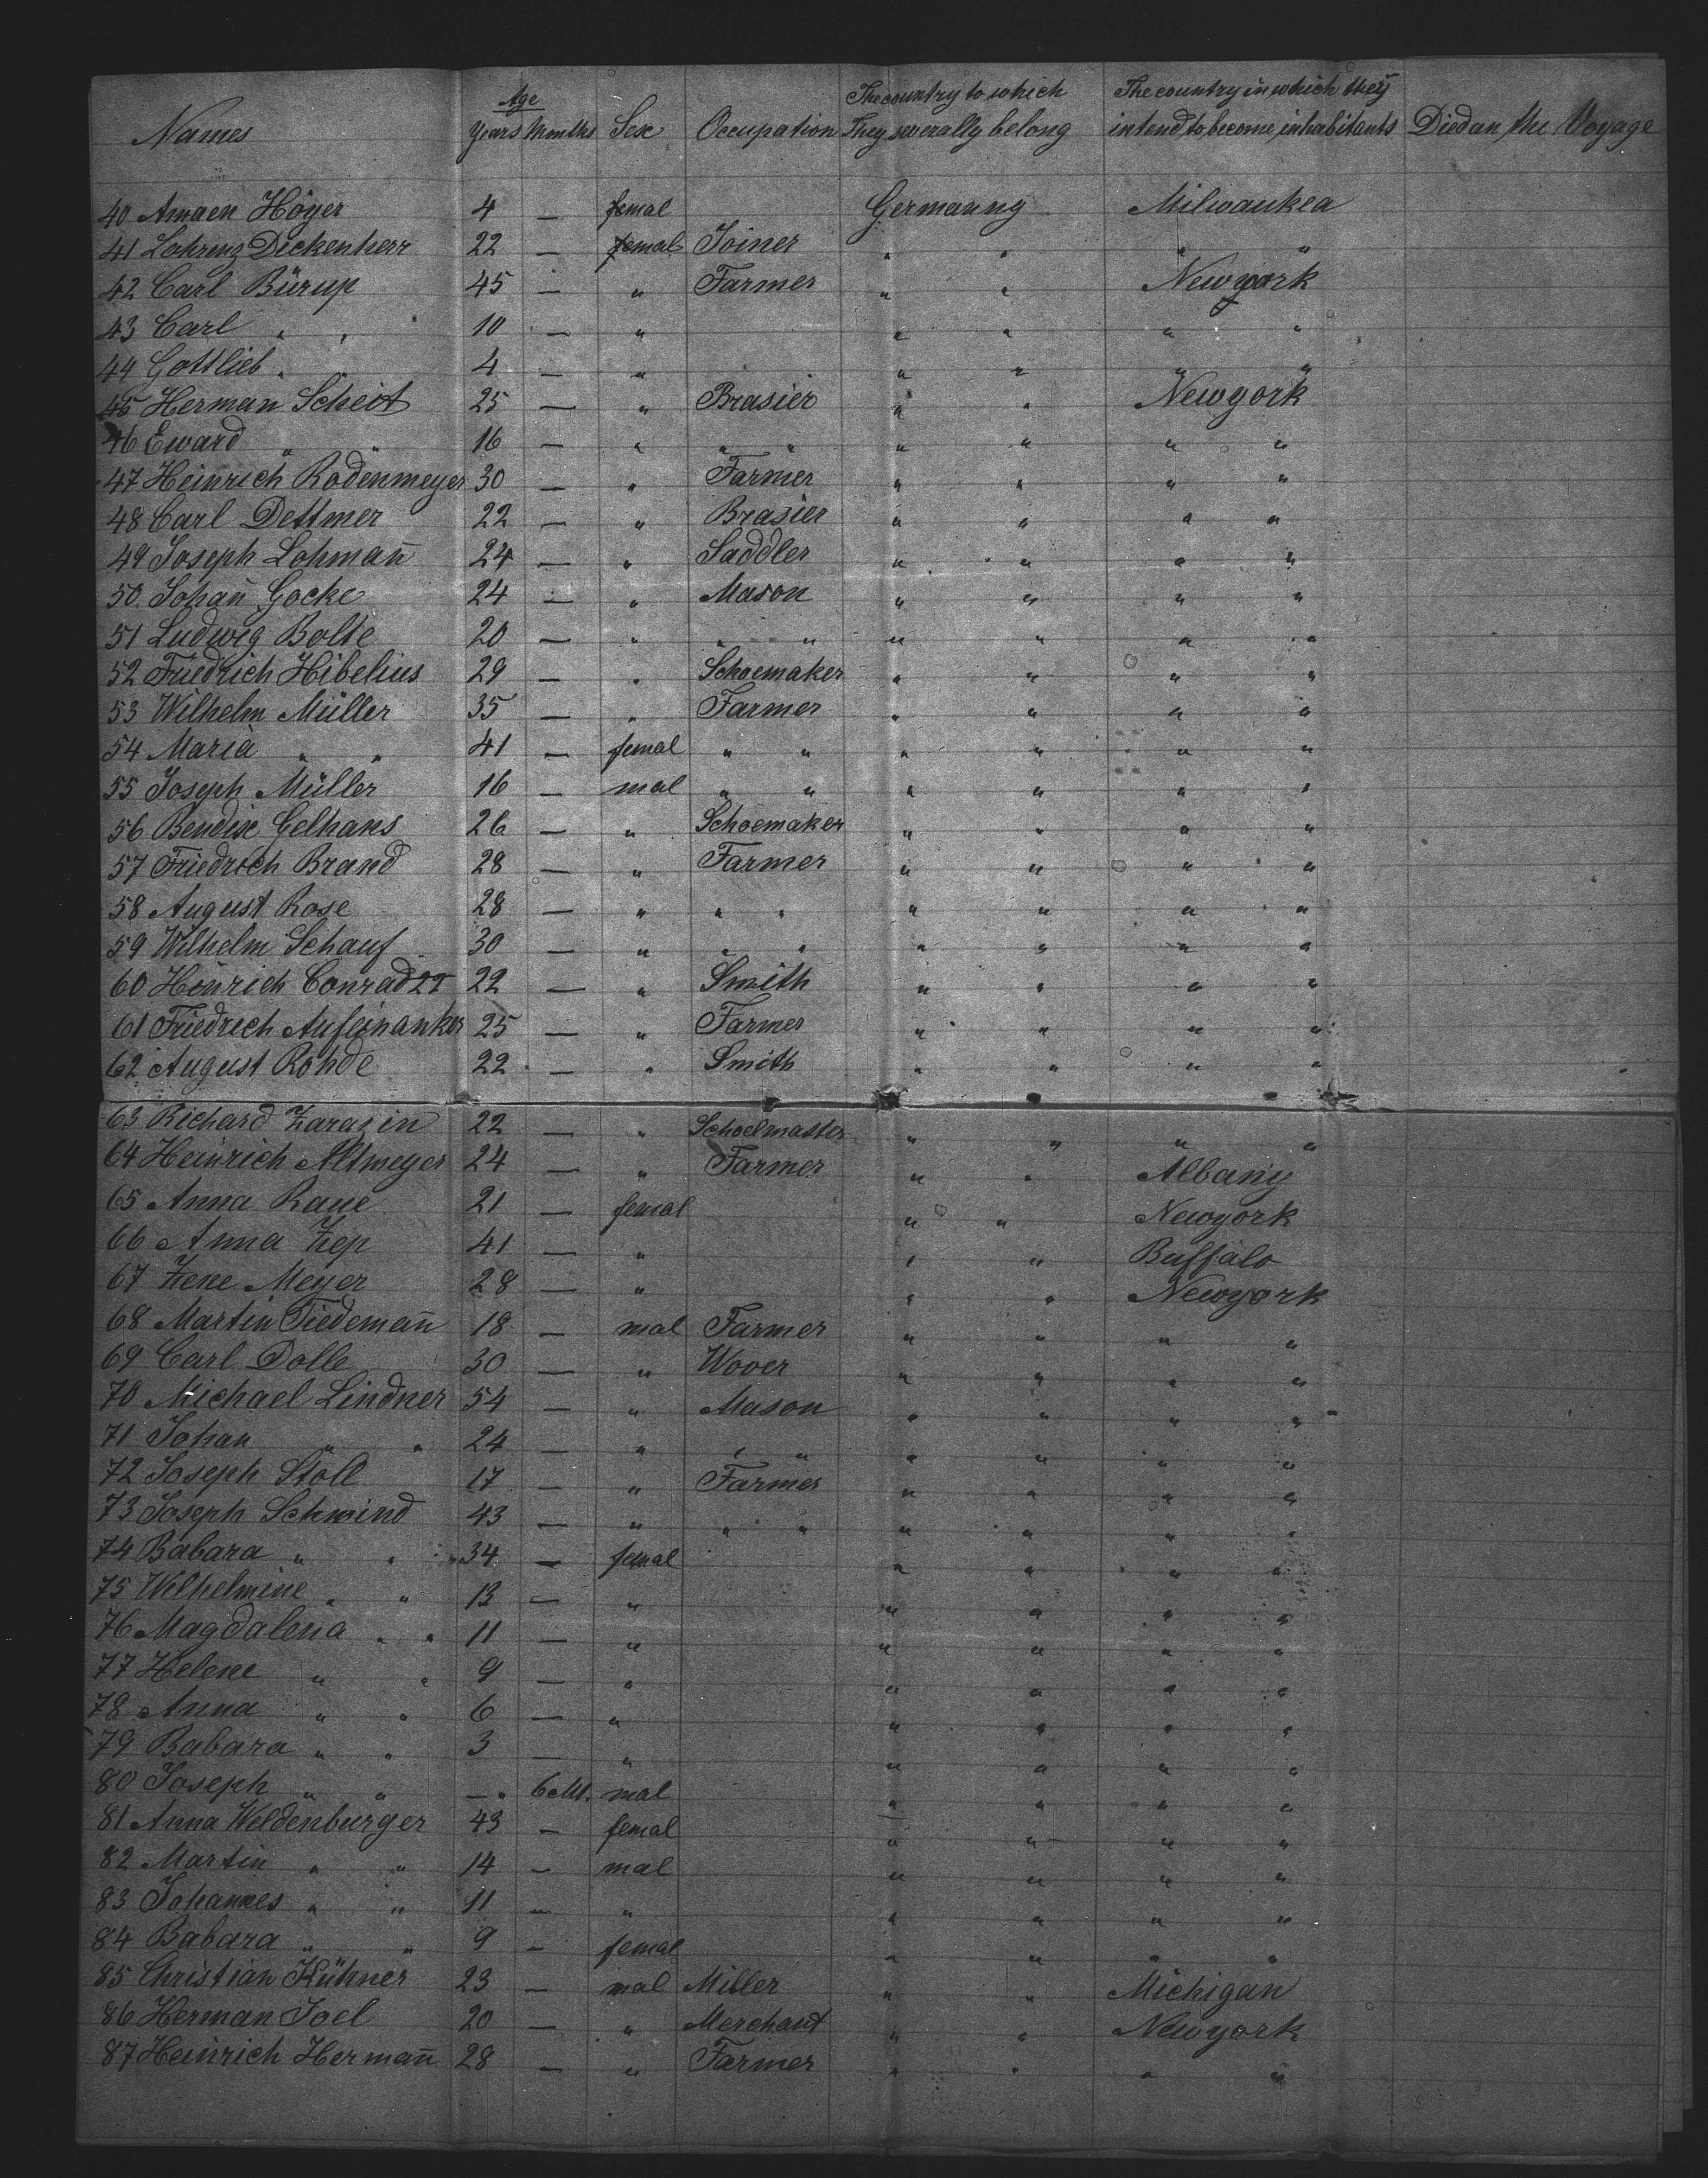 Names Age Years Months Sex Occupation The country to which They severally belong The country in which they intend to become inhabitants Died an the Voyage
40 Höyer 4 — femal Germanny Milwaukea
41 Lohrenz Dickenherr 22 — femal Joiner " " " "
42 Carl Bürup 45 — " Farmer " " Newyork
43 Carl " " 10 — " " " " "
44 Gottlieb " 4 — " " " " "
45 Herman Scheit 25 — " Brasier " " Newyork
46 Eward " " 16 — " " " " " " "
47 Heinrich Rodenmeyer 30 — " Farmer " " " "
48 Carl Dettmer 22 — " Brasier " " " "
49 Joseph Lohman̄ 24 — " Saddler " " " "
50 Johan̄ Gocke 24 — " Mason " " " "
51 Ludwig Bolte 20 — " " " " " " "
52 Friedrich Hibelius 29 — " Schoemaker " " " "
53 Wilhelm Müller 35 — " Farmer " " " "
54 Maria " " 41 — femal " " " " " "
55 Joseph Müller 16 — mal " " " " " "
56 Bendix Gelhaus 26 — " Schoemaker " " " "
57 Friedrich Brand 28 — " Farmer " " " "
58 August Rose 28 — " " " " " " "
59 Wilhelm Schauf 30 — " " " " " " "
60 Heinrich Conrad 22 22 — " Smith " " " "
61 Friedrich 25 — " Farmer " " " "
62 August Rohde 22 — " Smith " " " "
63 Richard Zarazin 22 — " Schoelmaster " " " "
64 Heinrich Altmeyer 24 — " Farmer " " Albany
65 Anna Raue 21 — femal " " Newyork
66 Anna Zep 41 — " " " Buffalo
67 Zene Meyer 28 — " " " Newyork
68 Martin Tiedeman̄ 18 — mal Farmer " " " "
69 Carl Dolle 30 — " Wover " " " "
70 Michael Lindner 54 — " Mason " " " "
71 Johan " " 24 — " " " " " " "
72 Joseph Stoll 17 — " Farmer " " " "
73 Joseph Schwind 43 — " " " " " " "
74 Babara " " 34 — femal " " " "
75 Wilhelmine " " 13 — " " " " "
76 Magdalena " " 11 — " " " " "
77 Helene " " 9 — " " " " "
78 Anna " " 6 — " " " " "
79 Babara " " 3 — " " " " "
80 Joseph " " — 6 M. mal " " " "
81 Anna Weldenburger 43 — femal " " " "
82 Martin " " 14 — mal " " " "
83 Johannes " " 11 — " " " " "
84 Babara " " 9 — femal " " " "
85 Christian Hühner 23 — mal Miller " " Michigan
86 Herman Joel 20 — " Merchant " " Newyork
87 Heinrich Herman̄ 28 — " Farmer " " " "